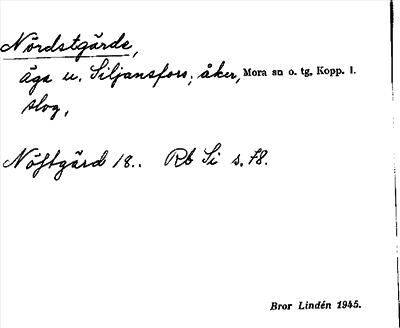 Nördstgärde,
äga u. Siljansfors; åker, Mora sn o. tg, Kopp. l.
slog,
Nöstgärd 18.. Rb Si s. 78.
Bror Lindén 1945.